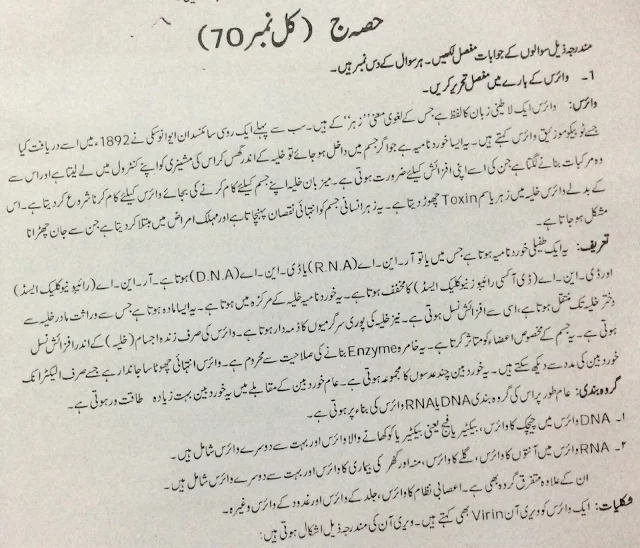 حصہ ج (کل نمبر 70)
مندرجہ ذیل سوالوں کے جوابات مفصل لکھیں۔ ہر سوال کے دس نمبر ہیں۔
1۔ وائرس کے بارے میں مفصل تحریر کریں۔
وائرس: وائرس ایک لاطینی زبان کا لفظ ہے جس کے لغوی معنی "زہر" کے ہیں۔ سب سے پہلے ایک روسی سائنسدان ایوانوسکی نے 1892ء میں اسے دریافت کیا
جسے ٹوبیکو موزئیق وائرس کہتے ہیں۔ یہ ایسا خوردنامیہ ہے جو اگر جسم میں داخل ہو جائے تو خلیہ کے اندر گھس کر اس کی مشینری کو اپنے کنٹرول میں لے لیتا ہے اور اس سے
وہ مرکبات بنانے لگتا ہے جن کی اسے اپنی افزائش کیلئے ضرورت ہوتی ہے۔ میزبان خلیہ اپنے جسم کیلئے کام کرنے کی بجائے وائرس کیلئے کام کرنا شروع کر دیتا ہے۔ اس
کے بدلے وائرس خلیہ میں زہر یا سم Toxin چھوڑ دیتا ہے۔ یہ زہر انسانی جسم کو انتہائی نقصان پہنچاتا ہے اور مہلک امراض میں مبتلا کر دیتا ہے جن سے جان چھڑانا
مشکل ہو جاتا ہے۔
تعریف: یہ ایک طفیلی خوردنامیہ ہوتا ہے جس میں یا تو آر۔ این۔ اے (R.N.A) یا ڈی۔ این۔ اے (D.N.A) ہوتا ہے۔ آر۔ این۔ اے (رائبو نیوکلیک ایسڈ)
اور ڈی۔ این۔ اے (ڈی آکسی رائبوز نیوکلیک ایسڈ) کا مخفف ہوتا ہے۔ یہ خوردنامیہ خلیہ کے مرکزہ میں ہوتا ہے۔ یہ ایسا مادہ ہوتا ہے جس سے وراثت مادر خلیہ سے
دختر خلیہ تک منتقل ہوتا ہے، اسی سے افزائش نسل ہوتی ہے۔ نیز خلیہ کی پوری سرگرمیوں کا ذمہ دار ہوتا ہے۔ وائرس کی صرف زندہ اجسام (خلیہ) کے اندر افزائش نسل
ہوتی ہے۔ یہ جسم کے مخصوص اعضاء کو متاثر کرتا ہے۔ یہ خامرہ Enzyme بنانے کی صلاحیت سے محروم ہے۔ وائرس انتہائی چھوٹا سا جاندار ہے جسے صرف الیکٹرانک
خوردبین کی مدد سے دیکھ سکتے ہیں۔ یہ خوردبین چند عدسوں کا مجموعہ ہوتی ہے۔ عام خوردبین کے مقابلے میں یہ خوردبین بہت زیادہ طاقت ور ہوتی ہے۔
گروہ بندی: عام طور پر اس کی گروہ بندی DNA یا RNA وائرس کی بناء پر ہوتی ہے۔
۱۔ DNA وائرس میں چیچک کا وائرس، بیکٹیریا فیج یعنی بیکٹیریا کو کھانے والا وائرس اور بہت سے دوسرے وائرس شامل ہیں۔
۲۔ RNA وائرس میں آنتوں کا وائرس، گلے کا وائرس، منہ اور کھر کی بیماری کا وائرس اور بہت سے دوسرے وائرس شامل ہیں۔
ان کے علاوہ متفرق گروہ بھی ہے۔ اعصابی نظام کا وائرس، جلد کے وائرس اور غدود کے وائرس وغیرہ۔
شکلیات: ایک وائرس کو ویری آن Virin بھی کہتے ہیں۔ ویری آن کی مندرجہ ذیل اشکال ہوتی ہیں: